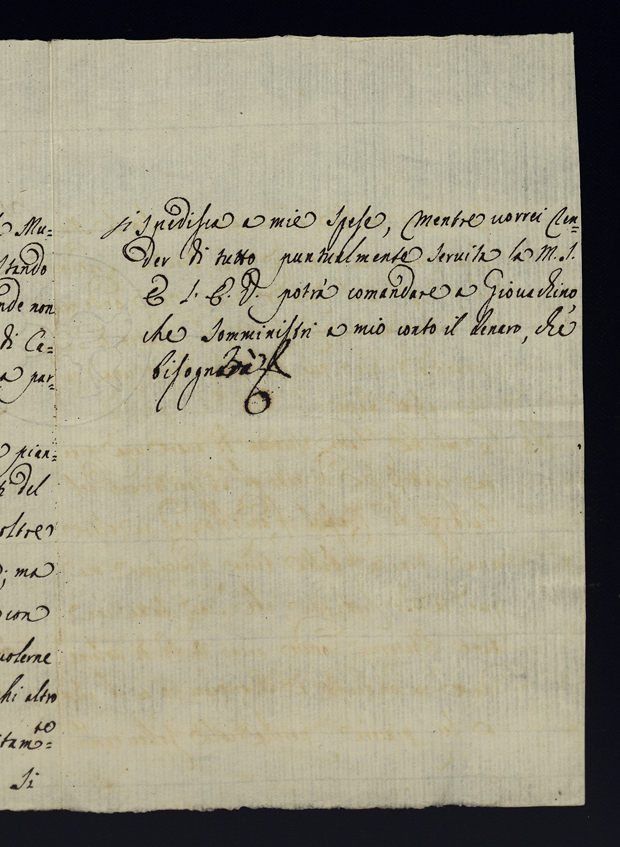 Mu=
stando
nde non
di Ca=
a par=
pian=
del
oltre
; ma
con
volerne
chi altro
itam.to=
Si
si spedisca a mie spese, mentre vorrei Ren=
der di tutto puntualmente servita la M. S.
E S. E. V. potrà comandare a Giovachino,
che somministri a mio conto il denaro, che
bisognerà